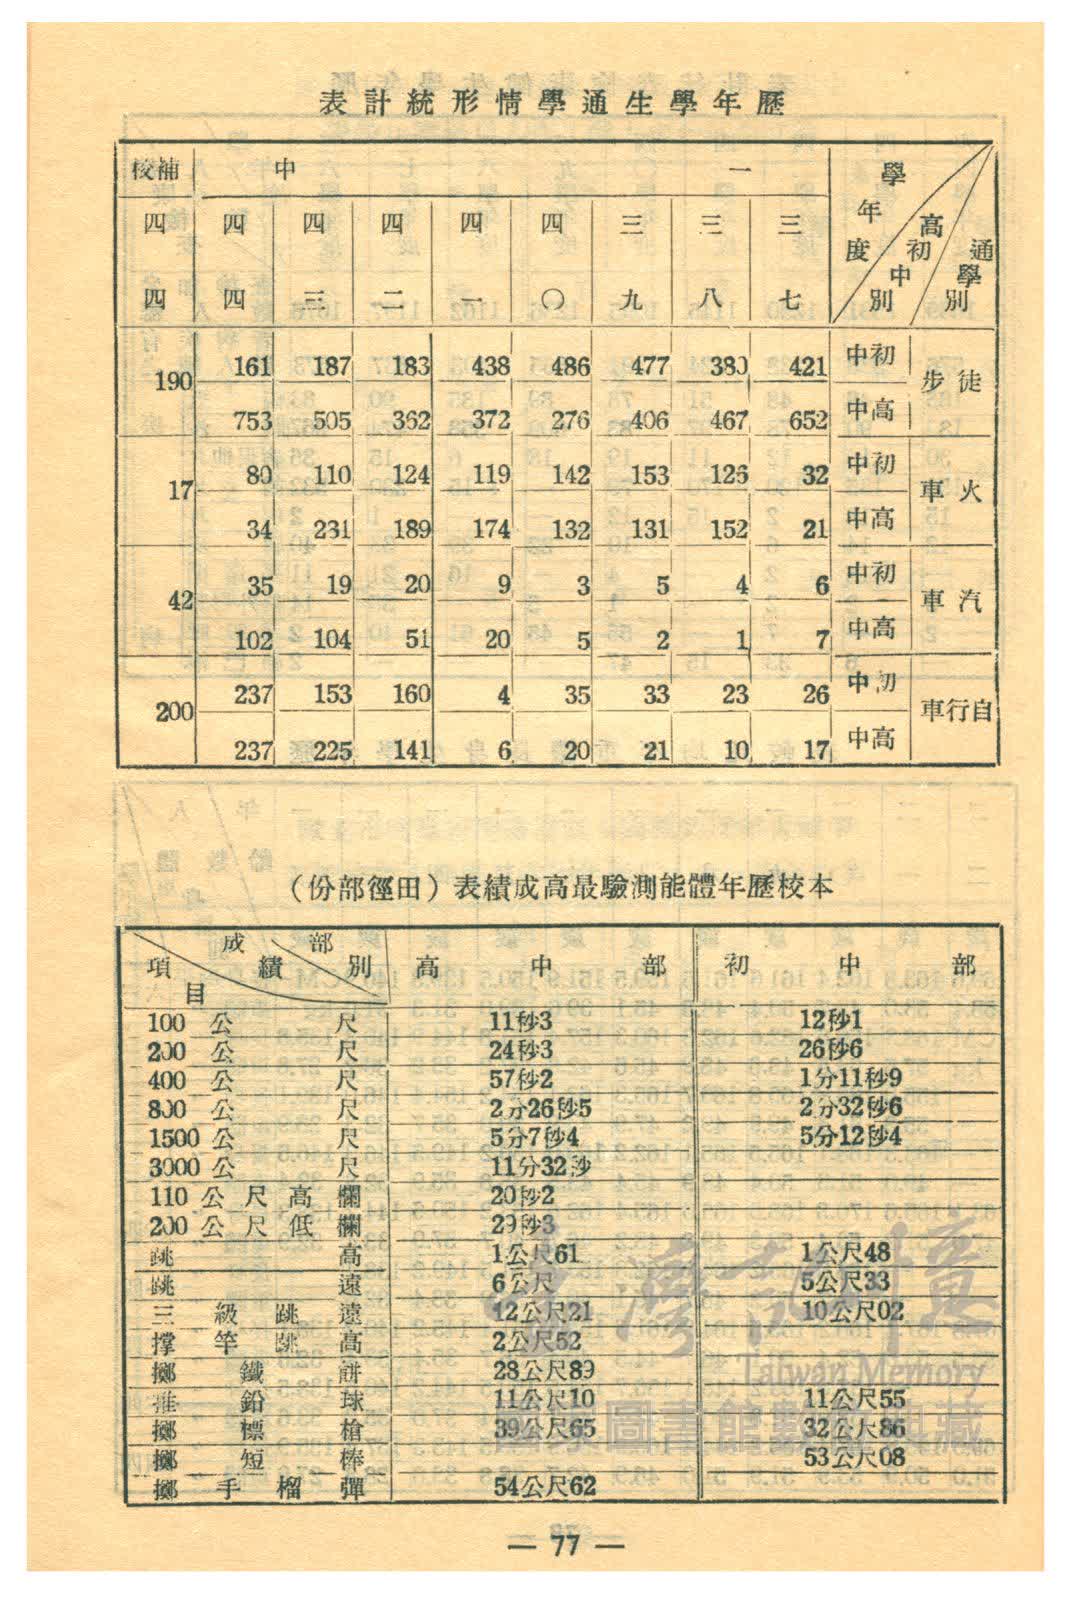 歷年學生通學情形統計表
學年度 高初中別 通學別
一中 補校
三七 三八 三九 四〇 四一 四二 四三 四四 四四
徒步 初中 421 380 477 486 438 183 187 161 190
高中 652 467 406 276 372 362 505 753
火車 初中 32 126 153 142 119 124 110 80 17
高中 21 152 131 132 174 189 231 34
汽車 初中 6 4 5 3 9 20 19 35 42
高中 7 1 2 5 20 51 104 102
自行車 初中 26 23 33 35 4 160 153 237 200
高中 17 10 21 20 6 141 225 237
本校歷年體能測驗最高成績表（田徑部份）
項目 成績 部別 高中部 初中部
100公尺 11秒3 12秒1
200公尺 24秒3 26秒6
400公尺 57秒2 1分11秒9
800公尺 2分26秒5 2分32秒6
1500公尺 5分7秒4 5分12秒4
3000公尺 11分32秒
110公尺高欄 20秒2
200公尺低欄 29秒3
跳高 1公尺61 1公尺48
跳遠 6公尺 5公尺33
三級跳遠 12公尺21 10公尺02
撑竿跳高 2公尺52
擲鐵餅 28公尺89
推鉛球 11公尺10 11公尺55
擲標槍 39公尺65 32公尺86
擲短棒 53公尺08
擲手榴彈 54公尺62
臺灣記憶
Taiwan Memory
國家圖書館數位典藏
— 77 —